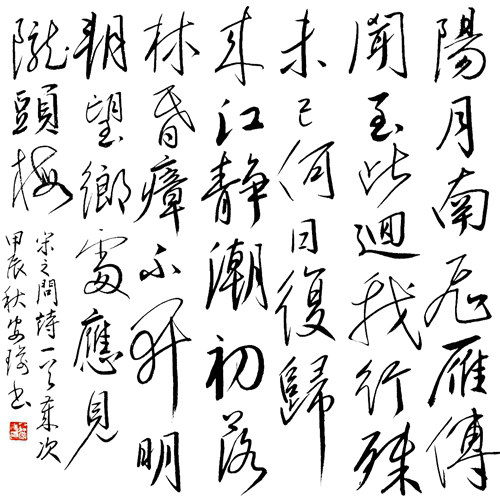 陽月南飛雁傳
聞至此迴我行殊
未已何日復歸
來江靜潮初落
林昏瘴不開明
朝望鄉處應見
隴頭梅
宋之問詩一首歲次
甲辰秋安書